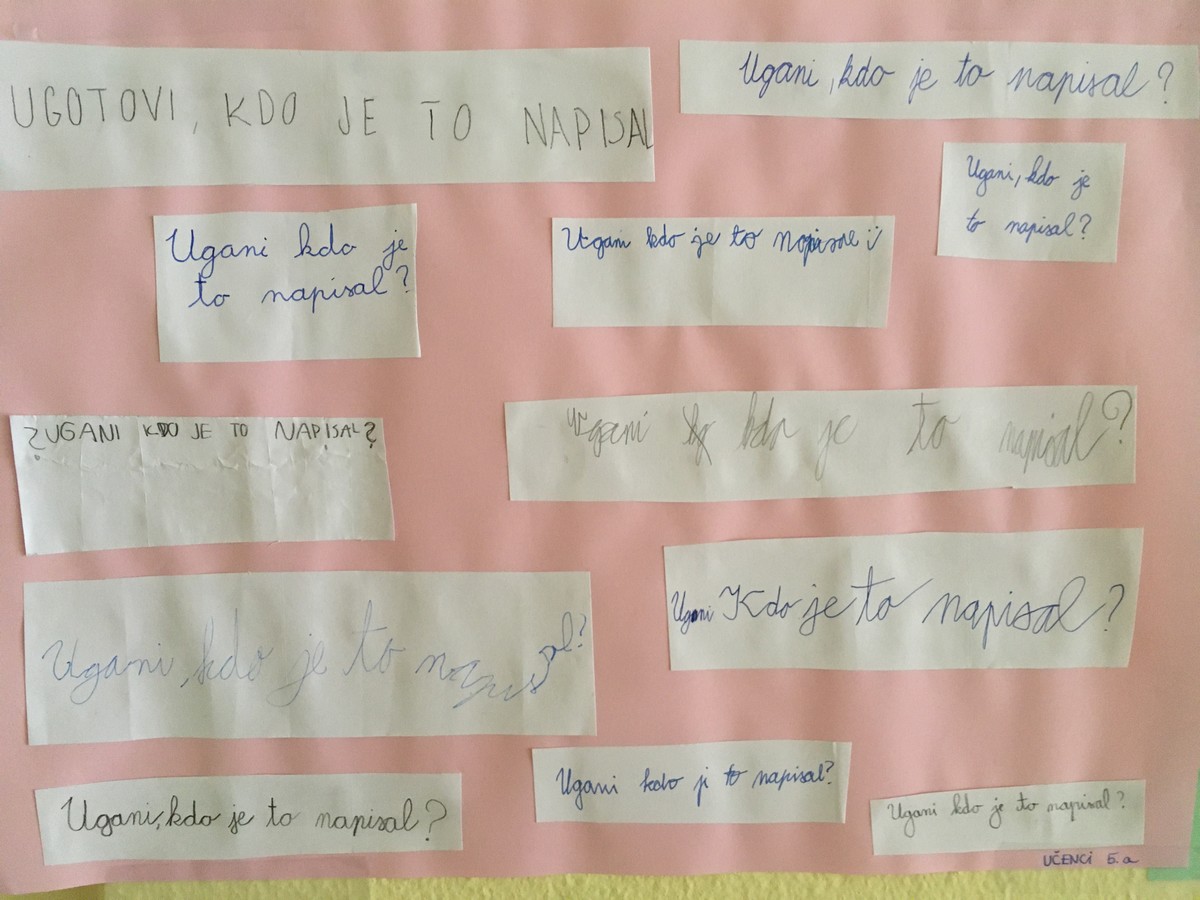 UGOTOVI, KDO JE TO NAPISAL
Ugani, kdo je to napisal?
Ugani, kdo je
to napisal?
Ugani kdo je
to napisal?
Ugani kdo je to
?UGANI KDO JE TO NAPISAL?
Ugani kdo je to napisal?
Ugani Kdo je to napisal?
Ugani, kdo je to napisal?
Ugani kdo ji to napisal?
Ugani, kdo je to napisal?
Ugani kdo je to napisal?
UČENCI 5. a